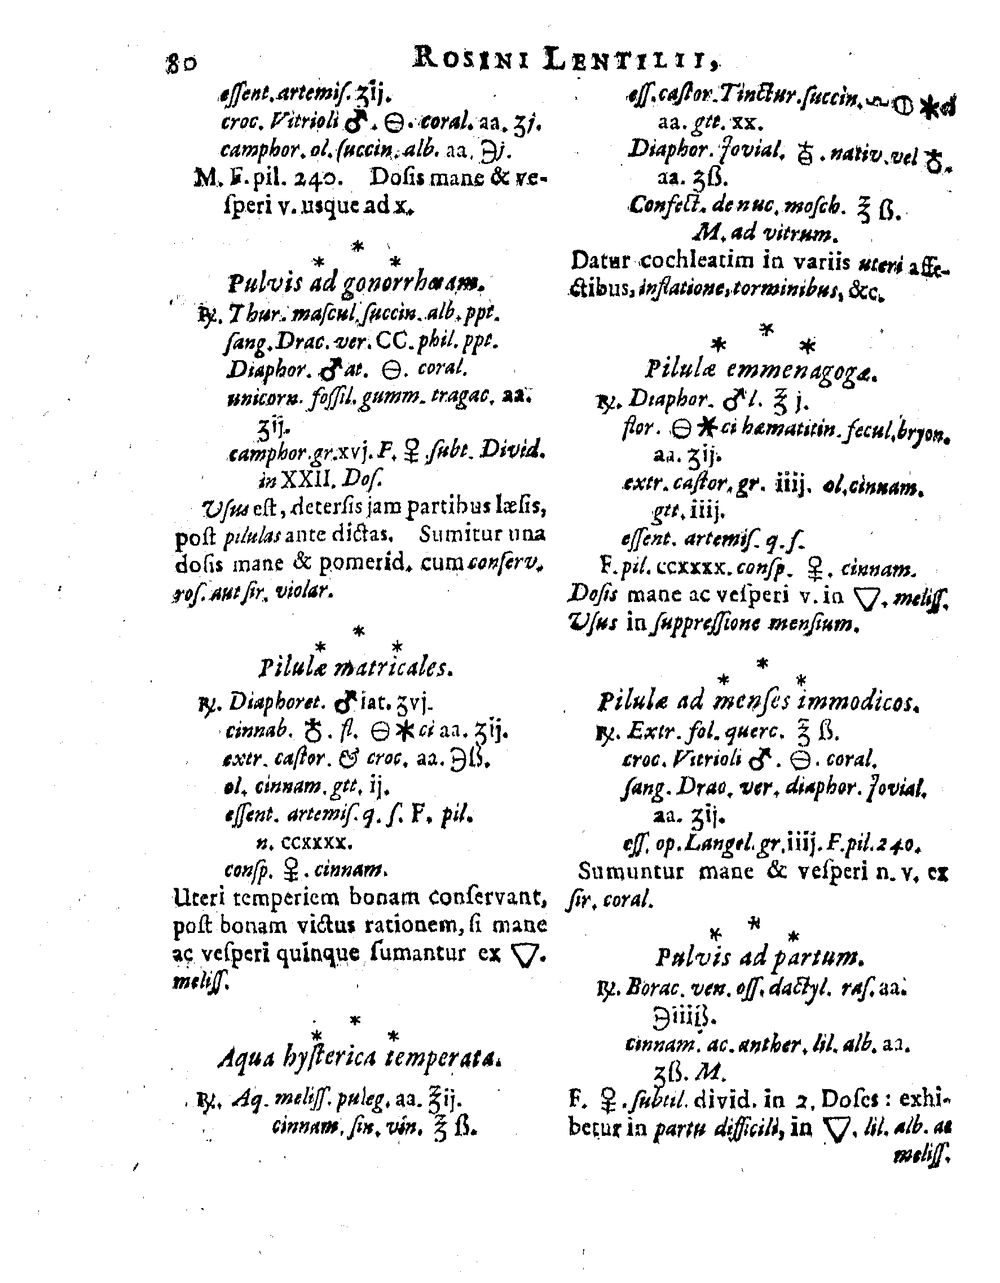 80 ROSINI LENTILII,
eſſent. artemiſ. ʒij.
croc. Vitrioli ♂. 🜔. coral. aa. ʒj.
camphor. ol. ſuccin. alb. aa. ℈j.
M. F. pil. 240. Doſis mane & ve-
ſperi v. usque ad x.
* * *
Pulvis ad gonorrhœam.
℞. Thur. maſcul. ſuccin. alb. ppt.
ſang. Drac. ver. CC. phil. ppt.
Diaphor. ♂at. 🜔. coral.
unicorn. foſſil. gumm. tragac. aa.
ʒij.
camphor. gr. xvj. F. ♀ ſubt. Divid.
in XXII. Doſ.
Uſus eſt, deterſis jam partibus læſis,
poſt pilulas ante dictas. Sumitur una
doſis mane & pomerid. cum conſerv.
roſ. aut ſir. violar.
* * *
Pilulæ matricales.
℞. Diaphoret. ♂iat. ʒvj.
cinnab. ♁. fl. 🜔 ✱ci aa. ʒij.
extr. caſtor. & croc. aa. ℈ß.
ol. cinnam. gtt. ij.
eſſent. artemiſ. q. ſ. F. pil.
n. CCXXXX.
conſp. ♀. cinnam.
Uteri temperiem bonam conſervant,
poſt bonam victus rationem, ſi mane
ac veſperi quinque ſumantur ex 🜄.
meliſſ.
* * *
Aqua hyſterica temperata.
℞. Aq. meliſſ. puleg. aa. ℥ij.
cinnam. ſin. vin. ℥ ß.
eſſ. caſtor. Tinctur. ſuccin. 🜕 ✱
aa. gtt. xx.
Diaphor. Jovial. ♁. nativ. vel ♁.
aa. ʒß.
Confect. de nuc. moſch. ℥ ß.
M. ad vitrum.
Datur cochleatim in variis uteri affe-
ctibus, inflatione, torminibus, &c.
* * *
Pilulæ emmenagogæ.
℞. Diaphor. ♂l. ℥ j.
flor. 🜔 ✱ci hæmatitin. fecul. bryon.
aa. ʒij.
extr. caſtor. gr. iiij. ol. cinnam.
gtt. iiij.
eſſent. artemiſ. q. ſ.
F. pil. CCXXXX. conſp. ♀. cinnam.
Doſis mane ac veſperi v. in 🜄. meliſſ.
Uſus in ſuppreſſione menſium.
* * *
Pilulæ ad menſes immodicos.
℞. Extr. fol. querc. ℥ ß.
croc. Vitrioli ♂. 🜔. coral.
ſang. Drac. ver. diaphor. Jovial.
aa. ʒij.
eſſ. op. Langel. gr. iiij. F. pil. 240.
Sumuntur mane & veſperi n. v. ex
ſir. coral.
* * *
Pulvis ad partum.
℞. Borac. ven. oſſ. dactyl. raſ. aa.
℈iiiß.
cinnam. ac. anther. lil. alb. aa.
ʒß. M.
F. ♀. ſubtil. divid. in 2. Doſes: exhi-
betur in partu difficili, in 🜄. lil. alb. ac
meliſſ.